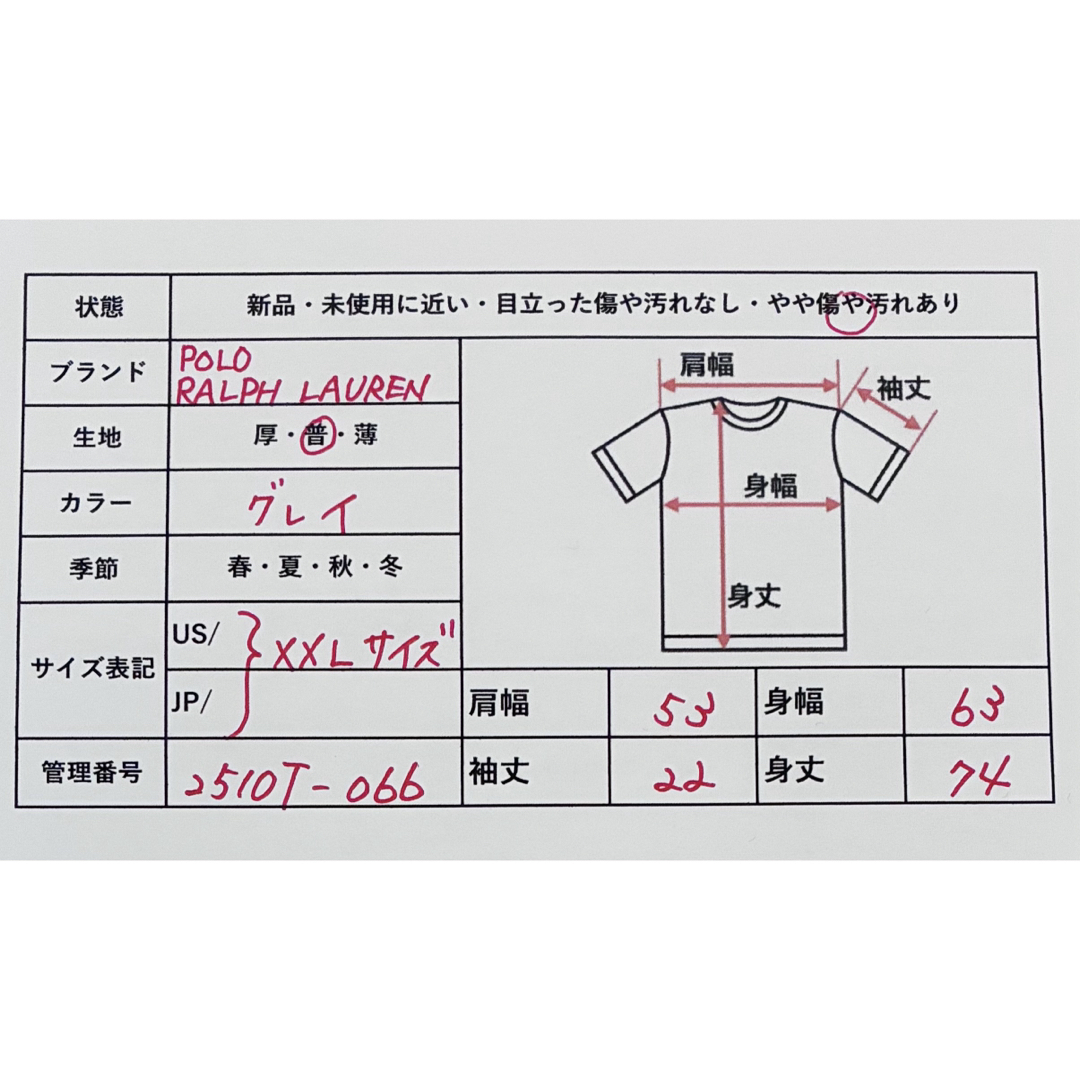 状態
新品・未使用に近い・目立った傷や汚れなし・やや傷や汚れあり
ブランド
POLO
RALPH LAUREN
生地
厚・普・薄
カラー
グレイ
季節
春・夏・秋・冬
サイズ表記
US/
JP/
XXLサイズ
管理番号
2510T-066
肩幅
袖丈
身幅
身丈
肩幅 53 身幅 63
袖丈 22 身丈 74